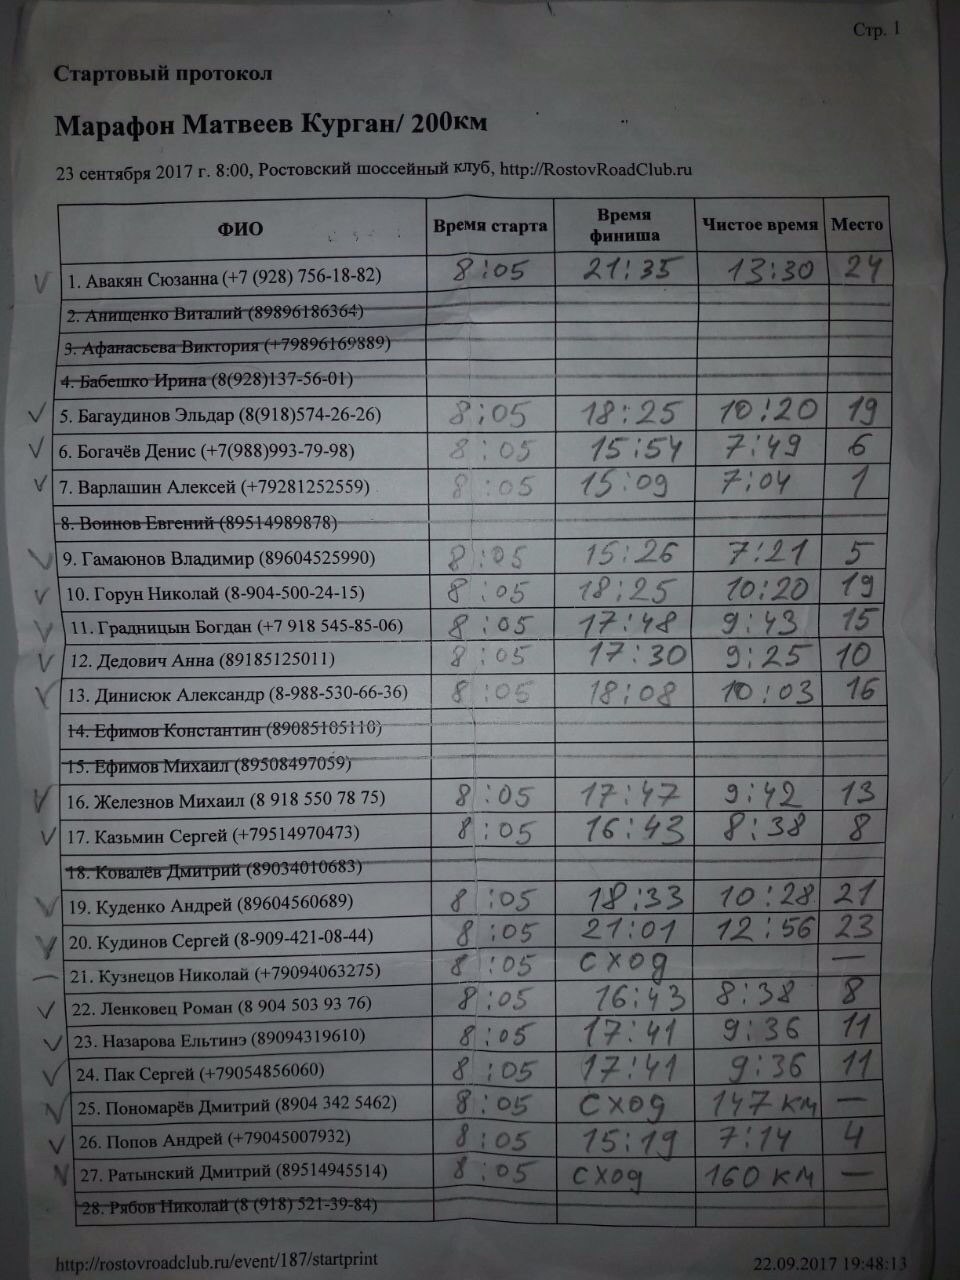 Стр. 1
Стартовый протокол
Марафон Матвеев Курган/ 200км
23 сентября 2017 г. 8:00, Ростовский шоссейный клуб, http://RostovRoadClub.ru
ФИО Время старта Время финиша Чистое время Место
1. Авакян Сюзанна (+7 (928) 756-18-82) 8:05 21:35 13:30 24
2. Анищенко Виталий (89896186364)
3. Афанасьева Виктория (+79896169889)
4. Бабешко Ирина (8(928)137-56-01)
5. Багаудинов Эльдар (8(918)574-26-26) 8:05 18:25 10:20 19
6. Богачёв Денис (+7(988)993-79-98) 8:05 15:54 7:49 6
7. Варлашин Алексей (+79281252559) 8:05 15:09 7:04 1
8. Воинов Евгений (89514989878)
9. Гамаюнов Владимир (89604525990) 8:05 15:26 7:21 5
10. Горун Николай (8-904-500-24-15) 8:05 18:25 10:20 19
11. Градницын Богдан (+7 918 545-85-06) 8:05 17:48 9:43 15
12. Дедович Анна (89185125011) 8:05 17:30 9:25 10
13. Динисюк Александр (8-988-530-66-36) 8:05 18:08 10:03 16
14. Ефимов Константин (89085105110)
15. Ефимов Михаил (89508497059)
16. Железнов Михаил (8 918 550 78 75) 8:05 17:47 9:42 13
17. Казьмин Сергей (+79514970473) 8:05 16:43 8:38 8
18. Ковалёв Дмитрий (89034010683)
19. Куденко Андрей (89604560689) 8:05 18:33 10:28 21
20. Кудинов Сергей (8-909-421-08-44) 8:05 21:01 12:56 23
21. Кузнецов Николай (+79094063275) 8:05 сход —
22. Ленковец Роман (8 904 503 93 76) 8:05 16:43 8:38 8
23. Назарова Ельтинэ (89094319610) 8:05 17:41 9:36 11
24. Пак Сергей (+79054856060) 8:05 17:41 9:36 11
25. Пономарёв Дмитрий (8904 342 5462) 8:05 сход 147 км —
26. Попов Андрей (+79045007932) 8:05 15:19 7:14 4
27. Ратынский Дмитрий (89514945514) 8:05 сход 160 км —
28. Рябов Николай (8 (918) 521-39-84)
http://rostovroadclub.ru/event/187/startprint 22.09.2017 19:48:13